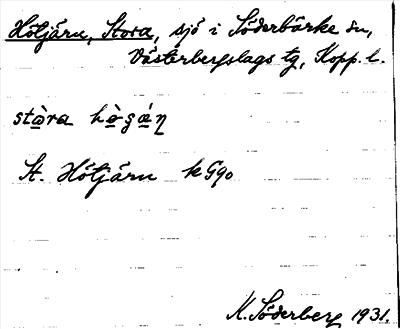 Hötjärn, Stora, sjö i Söderbärke sn,
Västerbergslags tg, Kopp. l.
St. Hötjärn k Gqo
K. Söderberg 1931.